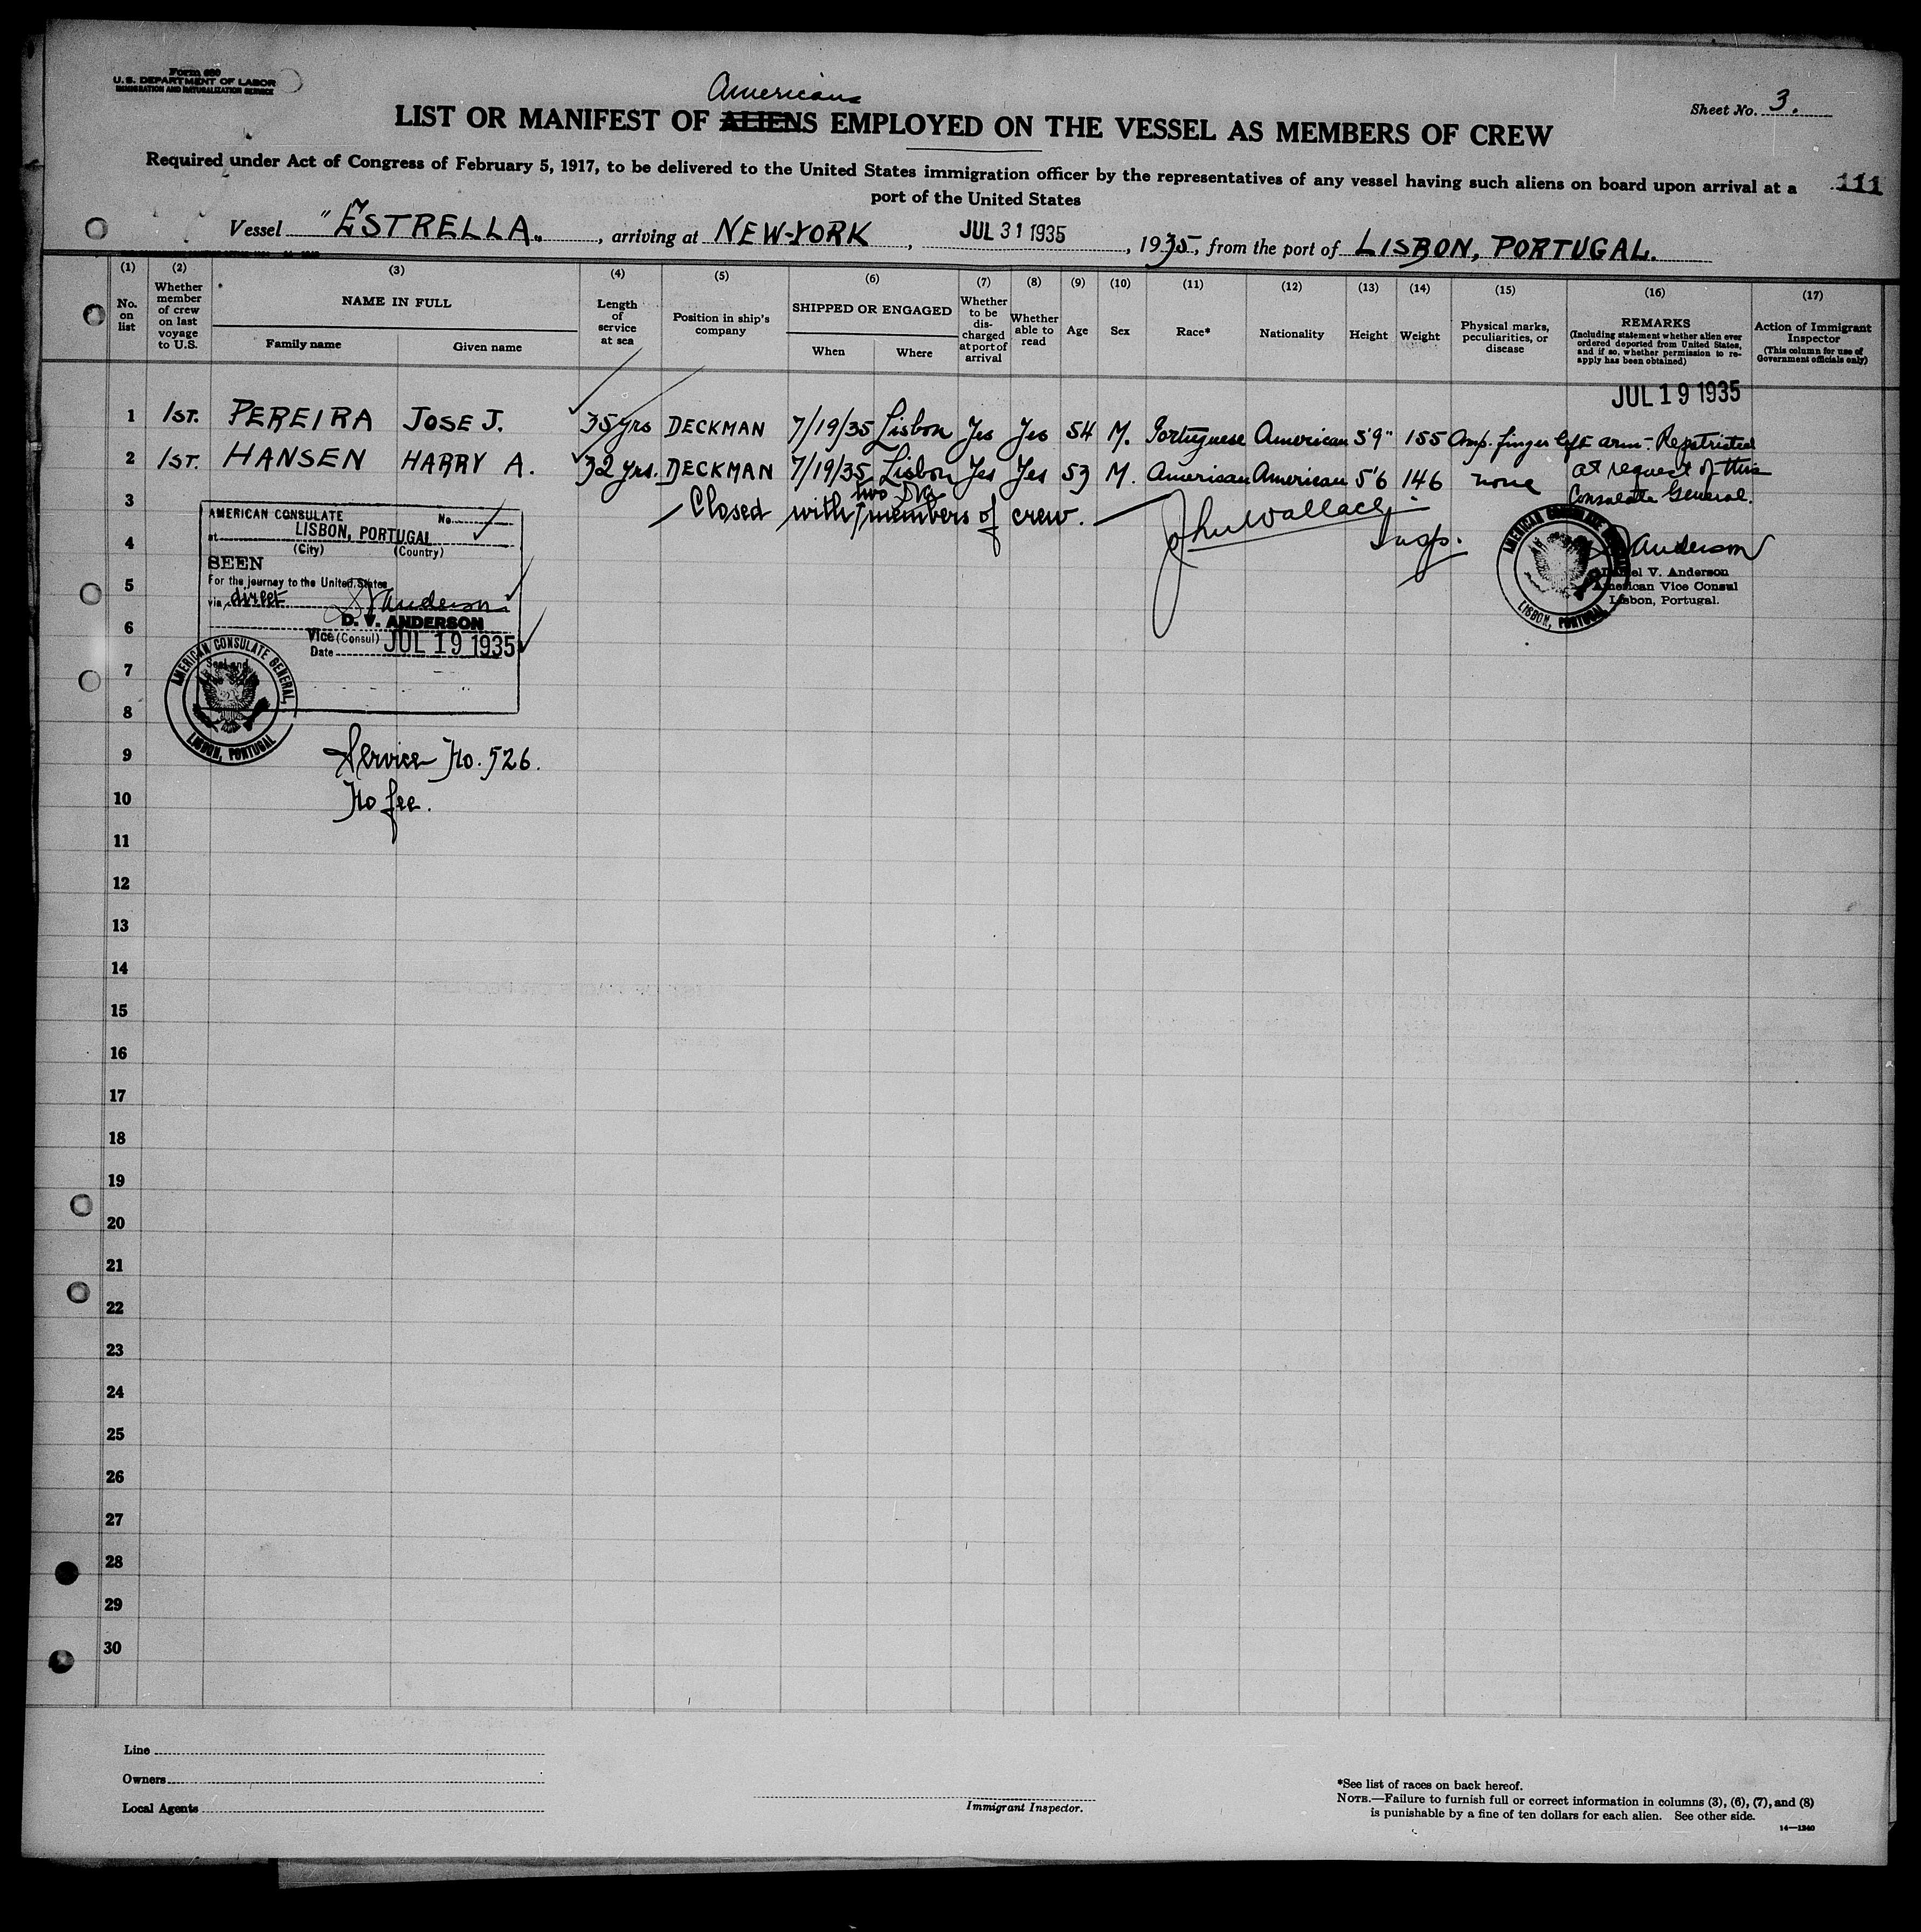 Form 680
U. S. DEPARTMENT OF LABOR
IMMIGRATION AND NATURALIZATION SERVICE
Americans
Sheet No. 3.
LIST OR MANIFEST OF ALIENS EMPLOYED ON THE VESSEL AS MEMBERS OF CREW
Required under Act of Congress of February 5, 1917, to be delivered to the United States immigration officer by the representatives of any vessel having such aliens on board upon arrival at a
port of the United States
111
Vessel "ESTRELLA", arriving at NEW-YORK, JUL 31 1935, 1935, from the port of LISBON, PORTUGAL.
(1) (2) (3) (4) (5) (6) (7) (8) (9) (10) (11) (12) (13) (14) (15) (16) (17)
No. on list
Whether member of crew on last voyage to U.S.
NAME IN FULL
Family name
Given name
Length of service at sea
Position in ship's company
SHIPPED OR ENGAGED
When
Where
Whether to be discharged at port of arrival
Whether able to read
Age
Sex
Race*
Nationality
Height
Weight
Physical marks, peculiarities, or disease
REMARKS
(Including statement whether alien ever ordered deported from United States, and if so, whether permission to reapply has been obtained)
Action of Immigrant Inspector
(This column for use of Government officials only)
JUL 19 1935
1 1ST. PEREIRA JOSE J. 35 yrs DECKMAN 7/19/35 Lisbon Yes Yes 54 M. Portuguese American 5'9" 155 Amp. finger left arm - Repatriated
2 1ST. HANSEN HARRY A. 32 yrs. DECKMAN 7/19/35 Lisbon Yes Yes 53 M. American American 5'6 146 none at request of this
Consulate General.
3
Closed with two members of crew.
John Wallace
Insp.
AMERICAN CONSULATE
No.
at LISBON, PORTUGAL
(City) (Country)
SEEN
For the journey to the United States
via direct
D V Anderson
D. V. ANDERSON
Vice (Consul)
Date JUL 19 1935
AMERICAN CONSULATE GENERAL,
LISBON, PORTUGAL
AMERICAN CONSULATE GENERAL
LISBON, PORTUGAL
Anderson
Daniel V. Anderson
American Vice Consul
Lisbon, Portugal.
4
5
6
7
8
Service No. 526.
No fee.
9
10
11
12
13
14
15
16
17
18
19
20
21
22
23
24
25
26
27
28
29
30
Line
Owners
Local Agents
Immigrant Inspector.
*See list of races on back hereof.
NOTE.—Failure to furnish full or correct information in columns (3), (6), (7), and (8)
is punishable by a fine of ten dollars for each alien. See other side.
14—1240